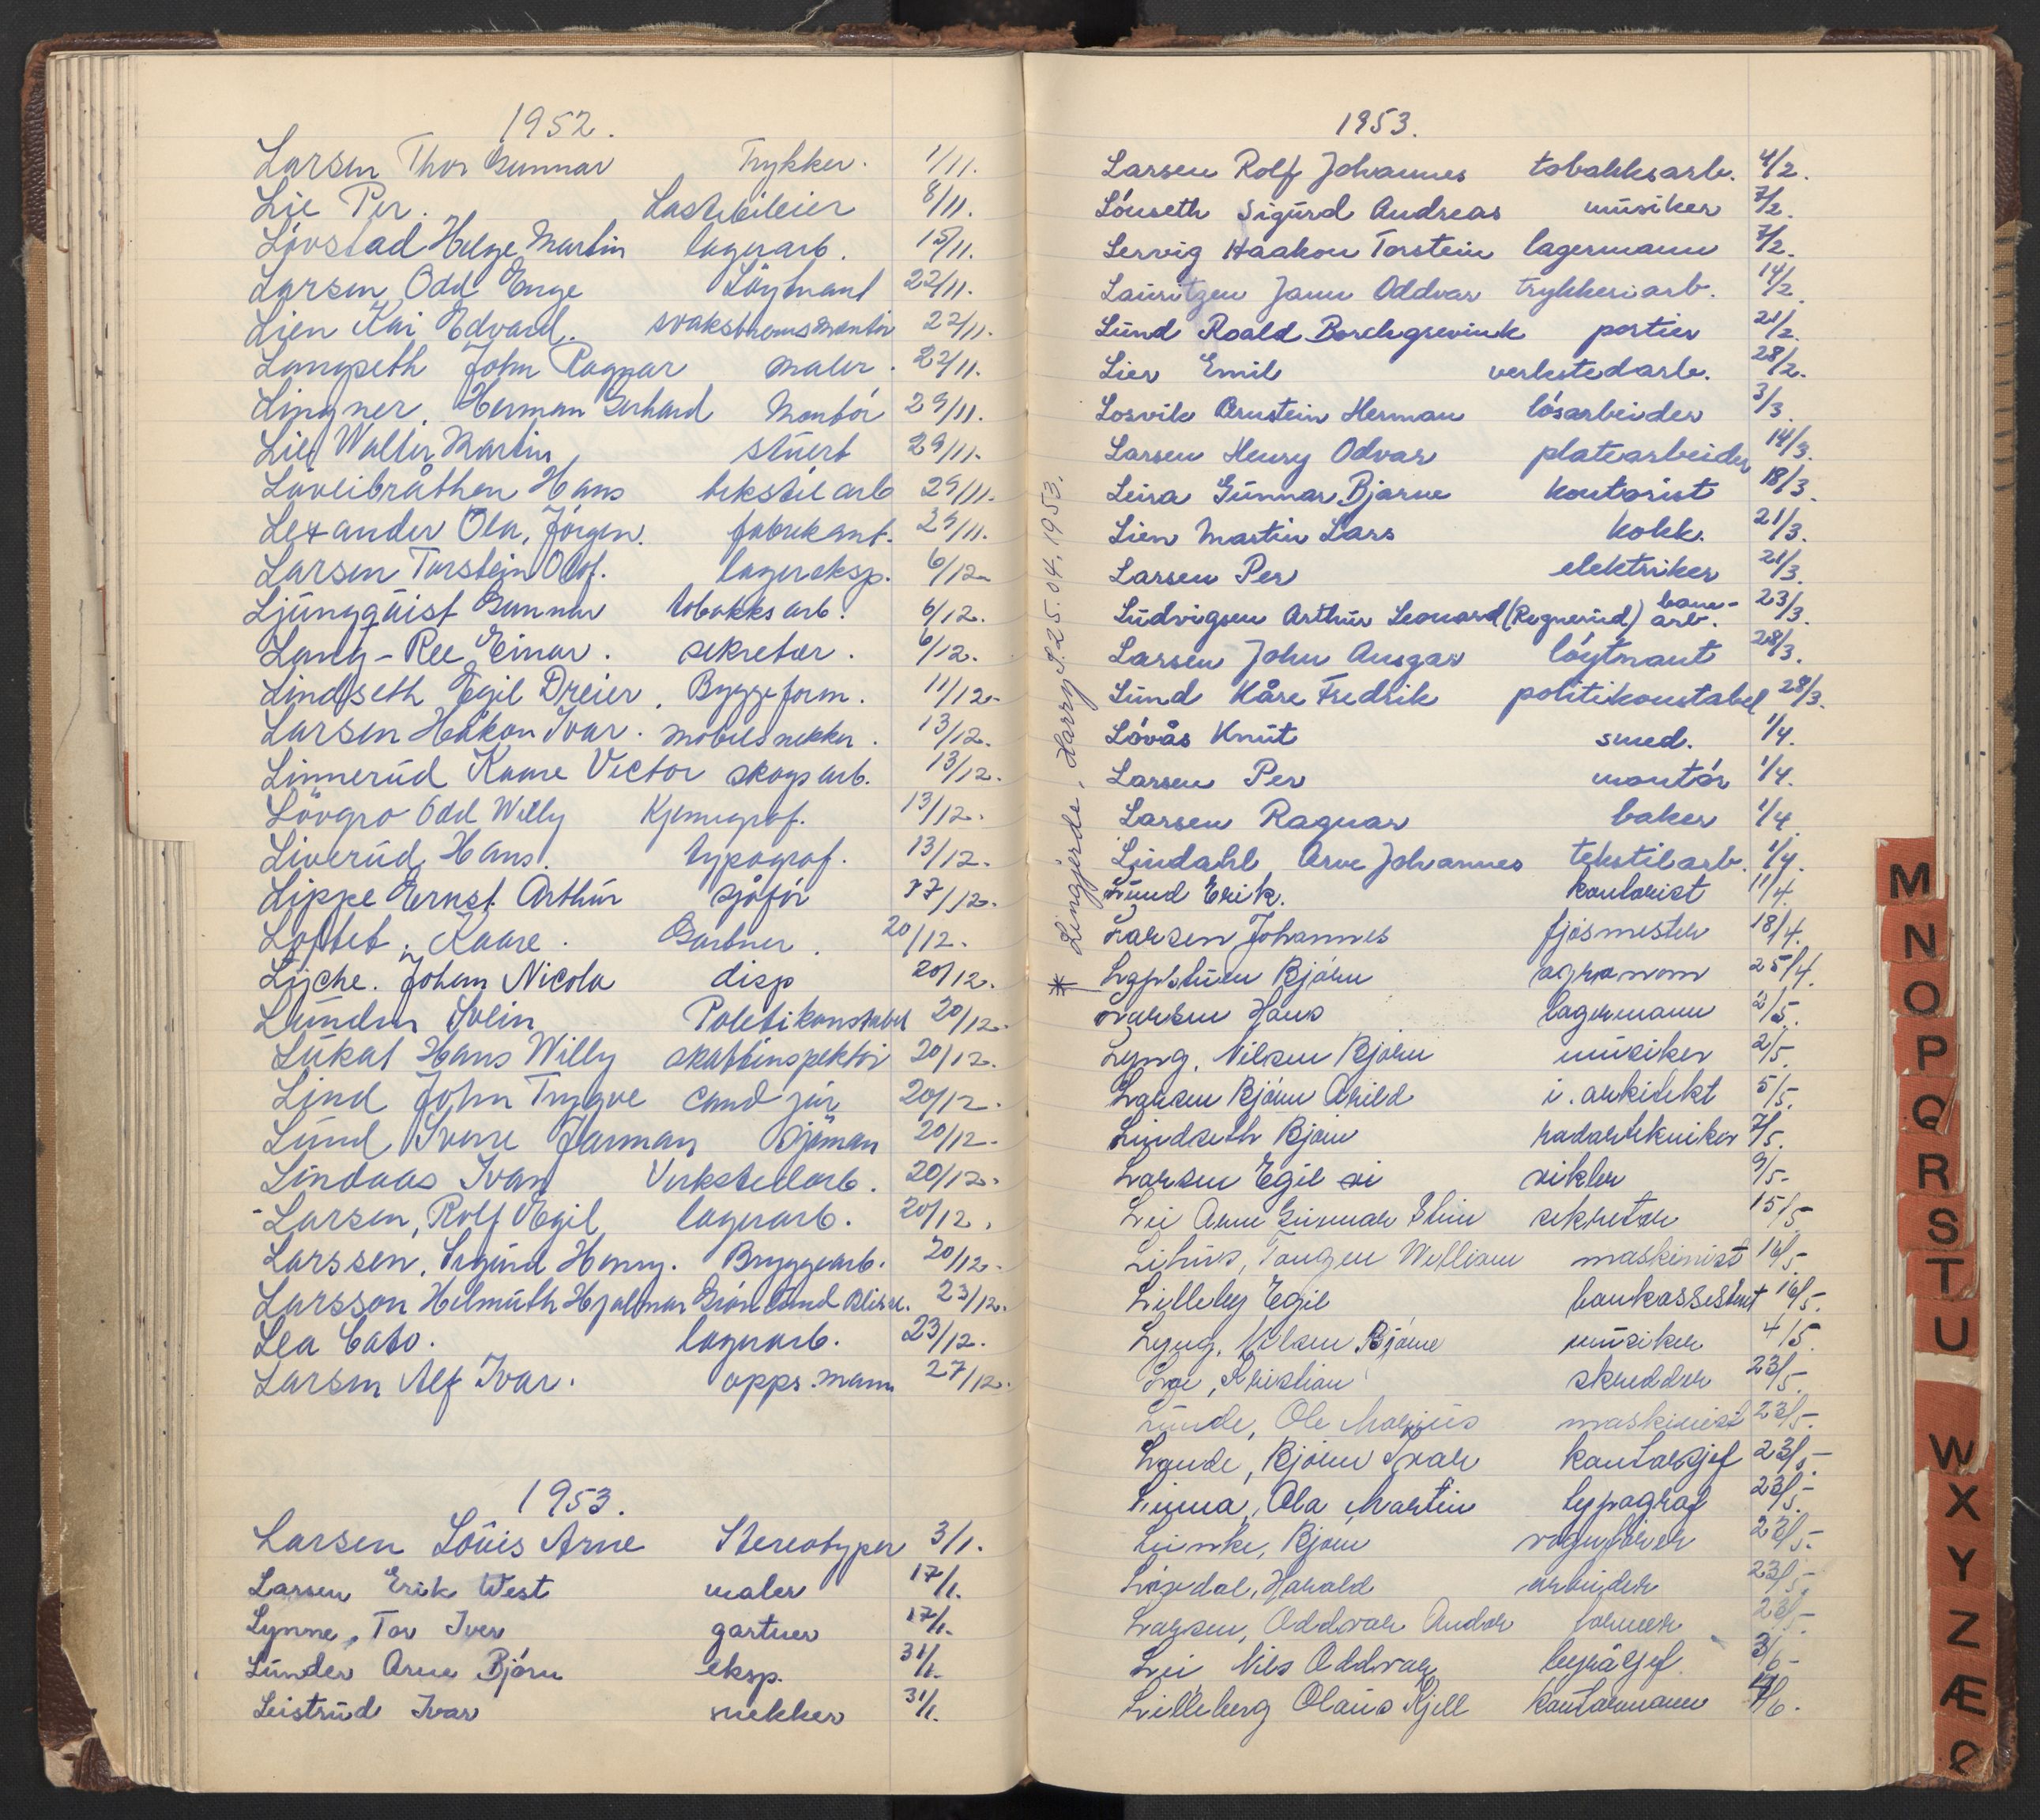 1952.
Larsen Thor Gunnar Trykker. 1/11.
Lie Per. Lastebileier 8/11.
Lövstad Helge Martin lagerarb. 15/11.
Larsen Odd Enge Löytnant 22/11.
Lien Kai Edvard. svakstrømsmontör 22/11.
Langseth John Ragnar maler. 22/11.
Lingner, Herman Gerhard Montör 29/11.
Lie Walter Martin stuert 29/11.
Lövlibråthen Hans tekstilarb 29/11.
Lexander Ola, Jörgen. fabrikant. 29/11.
Larsen Torstein Olof. lagereksp. 6/12.
Ljungquist Gunnar tobakksarb. 6/12.
Lang-Ree Einar. sekretær. 6/12.
Lindseth Egil Dreier. Byggeform. 11/12.
Larsen Håkon Ivar. möbelsnekker. 13/12.
Linnerud Kaare Victor skogsarb. 13/12.
Lövgro Odd Willy Kjemigraf. 13/12.
Liverud Hans. typograf. 13/12.
Lippe Ernst Arthur sjåför 17/12.
Loftet, Kaare. Gartner. 20/12.
Lyche. Johan Nicola disp 20/12.
Lunden Svein Politikonstabel 20/12.
Lukat Hans Willy skatteinspektör 20/12.
Lind John Trygve cand jur 20/12.
Lund Sverre Jarman Sjöman 20/12.
Lindaas Ivar Verkstedarb. 20/12.
Larsen, Rolf Egil lagerarb. 20/12.
Larssen, Sigurd Henry. Bryggearb. 20/12.
Larsson Helmuth Hjalmar Grönlund 23/12.
Lea Cato. lagerarb. 23/12.
Larsen Alf Ivar. opps.mann 27/12.
1953.
Larsen Louis Arne Stereotyper 3/1.
Larsen Erik West maler 17/1.
Lynne, Tor Iver gartner 17/1.
Lunder Arne Björn eksp. 31/1.
Leistrud Ivar snekker 31/1.
1953.
Larsen Rolf Johannes tobakksarb. 4/2.
Lönseth Sigurd Andreas musiker 7/2.
Lervig Haakon Torstein lagermann 7/2.
Lauritzen Jann Oddvar trykkeriarb. 14/2.
Lund Roald Borchgrevink portier 21/2.
Lier Emil verkstedarb. 28/2.
Losvik Arnstein Herman lösarbeider 3/3.
Larsen Henry Odvar platearbeider 14/3.
Leira Gunnar Bjarne kontorist 18/3.
Lien Martin Lars kokk. 21/3.
Larsen Per elektriker 21/3.
Ludvigsen Arthur Leonard (Regnerud) bane-arb. 23/3.
Larsen John Ansgar löytnant 28/3.
Lund Kåre Fredrik politikonstabel 28/3.
Lövås Knut smed. 1/4.
Larsen Per montör 1/4.
Larsen Ragnar baker 1/4.
Lindahl Arve Johannes tekstilarb. 1/4.
Lund Erik. kontorist 11/4.
Larsen Johannes fjösmester 18/4.
* Lingjerde, Harry S. 25.04.1953.
Björn agronom 25/4.
Larsen Hans lagermann 2/5.
Lyng, Nilsen Björn musiker 2/5.
Larsen Björn Arild i. arkitekt 5/5.
Lindseth Björn radartekniker 7/5.
Larsen Egil vikler 9/5.
Lie Arne Gunnar sekretær 15/5
Tangen William maskinist 16/5.
Lilleby Egil bankassistent 16/5.
Lyng, Nilsen Björn musiker 4/5.
Kristian skredder 23/5.
Lunde, Ole Marius maskinist 23/5.
Lande, Björn Ivar kontorsjef 23/5.
Linna, Ola Martin typograf 23/5.
Bjørn vognförer 23/5.
Harald arbeider 23/5.
Larsen, Oddvar Andor former 23/5.
Lie Nils Oddvar byråsjef 3/6
Lilleberg Olaus Kjell kontormann 4/6.
M
N
O
P
Q
R
S
T
U
W
X
Y
Z
Æ